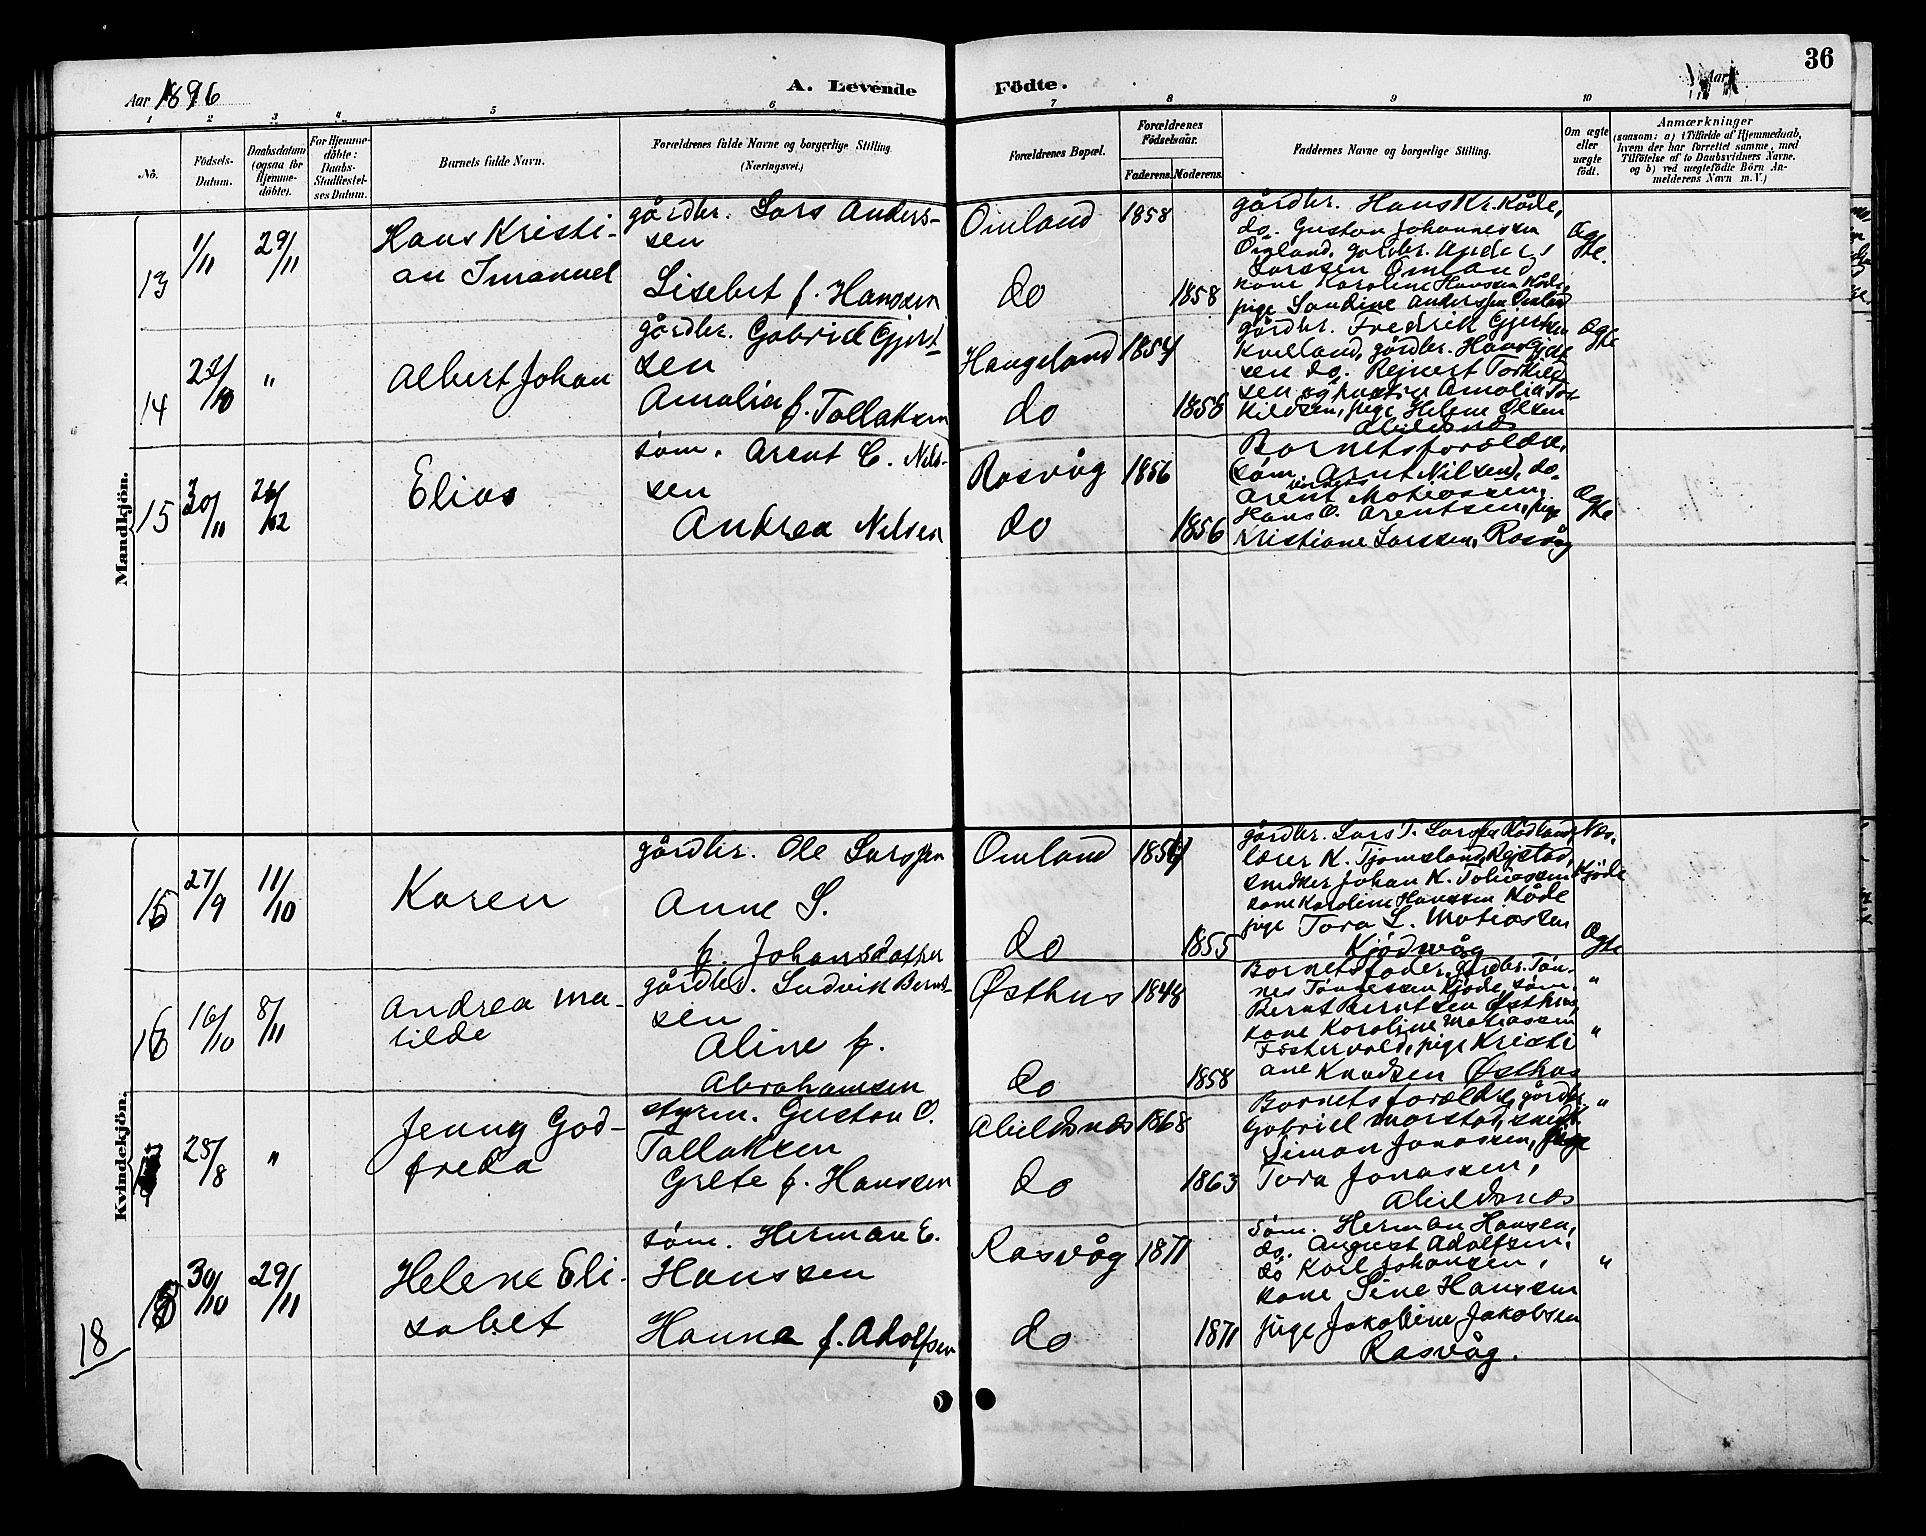 36
Aar 1896
A. Levende Födte.
Aar
1 2 3 4 5 6 7 8 9 10
No.
Födsels-Datum.
Daabsdatum (ogsaa for Hjemme-döbte).
For Hjemme-döbte: Daabs-Stadfæstelses Datum.
Barnets fulde Navn.
Forældrenes fulde Navne og borgerlige Stilling. (Næringsvei.)
Forældrenes Bopæl.
Forældrenes Födselsaar.
Faderens. Moderens.
Faddernes Navne og borgerlige Stilling.
Om ægte eller uægte födt.
Anmærkninger
(saasom: a) i Tilfælde af Hjemmedaab, hvem der har forrettet samme, med Tilföielse af to Daabsvidners Navne, og b) ved uægtefödte Börn Anmelderens Navn m. V.)
Mandkjön.
13
1/11
29/11
Hans Kristi-
an Imanuel
gårdbr. Lars Anders-
sen
Lisebet f. Hanssen
Omland
do
1858
1858
gårdbr. Hans Kr. Kåde,
do. Gustav Johannessen
Omland, gårdbr. Anders
Larssen Omland
kone Karoline Hanssen Kåde
pige Sandine Anderssen Omland
Ægte.
14
"
Albert Johan
gårdbr. Gabriel Gjert-
sen
Amalia f. Tollaksen
Haugeland
do
1854
1858
gårdbr. Fredrik Gjertsen
Kvelland, gårdbr. Hans Gjert-
sen do. Rejnert Torkild-
sen og hustru Amalia Tor-
kildsen, pige Helene Olsen
Abildsnæs
Ægte
15
30/11
26/12
Elias
søm. Arent C. Nils-
sen
Andrea Nilsen
Rasvåg
do
1856
1856
Barnets forældre,
(søm. Arnt Nilsen), do.
Arent Matiassen,
Hans O. Arentsen, pige
Kristiane Larssen, Rasvåg
Ægte
Kvindekjön.
15
27/9
11/10
Karen
gårdbr. Ole Larssen
Anne S.
f. Johansdatter
Omland
do
1854
1855
gårdbr. Lars T. Larssen Rødland, Næs,
lærer K. Tjomsland, Rejstad,
snedker Johan K. Tobiassen Kjøde
kone Karoline Hanssen Kåde
pige Tora L. Matiassen
Kjødvåg
Ægte
16
16/10
8/11
Andrea Ma-
tilde
gårdbr. Ludvik Bernt-
sen
Aline f.
Abrahamsen
Østhus
do
1848
1858
Barnets fader, gårdbr. Tøn-
nes Tønnessen Kjøde, søm.
Bernt Berntsen Østhus,
kone Karoline Matiassen
Fostervold, pige Kristi-
ane Knudsen Østhus
"
"
25/8
"
Jenny God-
freda
styrm. Gustav O.
Tallaksen
Grete f. Hanssen
Abildsnæs
do
1868
1863
Barnets forældre, gårdbr.
Gabriel Marstad, snedk.
Simon Jonassen, pige
Tora Jonassen,
Abildsnæs
"
18
30/10
29/11
Helene Eli-
sabet
søm. Herman E.
Hanssen
Hanna f. Adolfsen
Rasvåg
do
1871
1871
Søm. Herman Hansen,
do. August Adolfsen,
do Karl Johansen,
kone Sine Hanssen
pige Jakobine Jakobsen
Rasvåg.
"